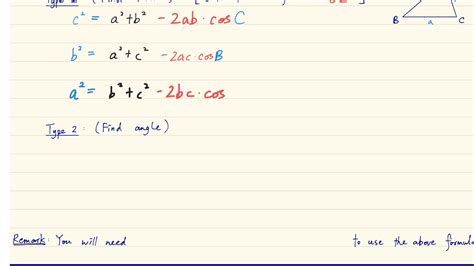 c² = a² + b² - 2ab · cos C
B a C
b² = a² + c² - 2ac · cos B
a² = b² + c² - 2bc · cos
Type 2 : (Find angle)
Remark: You will need to use the above formula